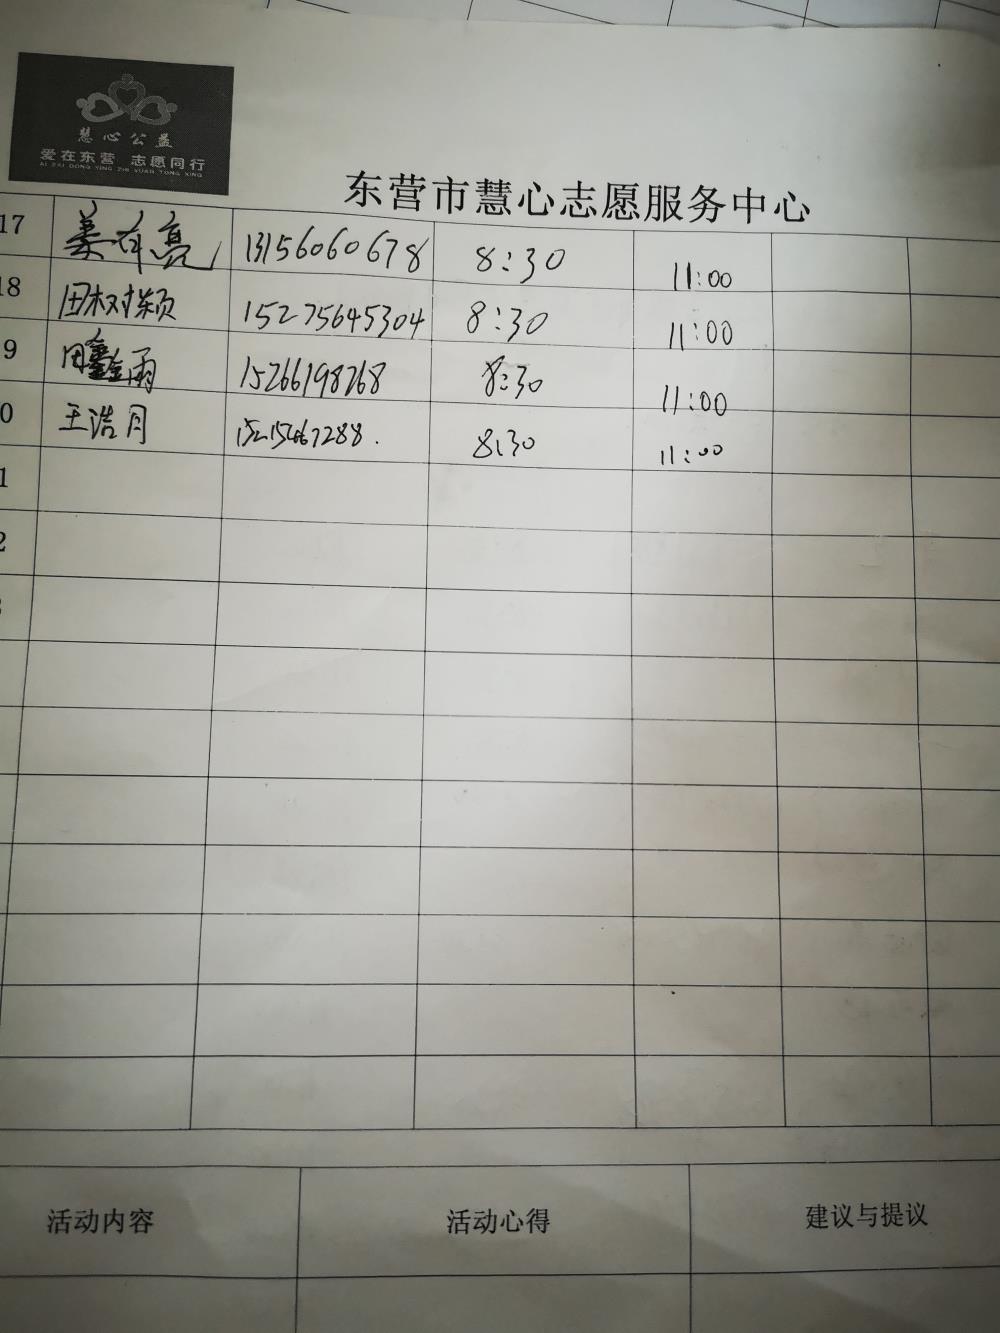 慧心公益
爱在东营 志愿同行
AI ZAI DONG YING ZHI YUAN TONG XING
东营市慧心志愿服务中心
17 姜有亮 13156060678 8:30 11:00
18 田树颖 15275645304 8:30 11:00
9 田鑫雨 15266198268 8:30 11:00
0 王浩月 8:30 11:00
1
2
活动内容 活动心得 建议与提议